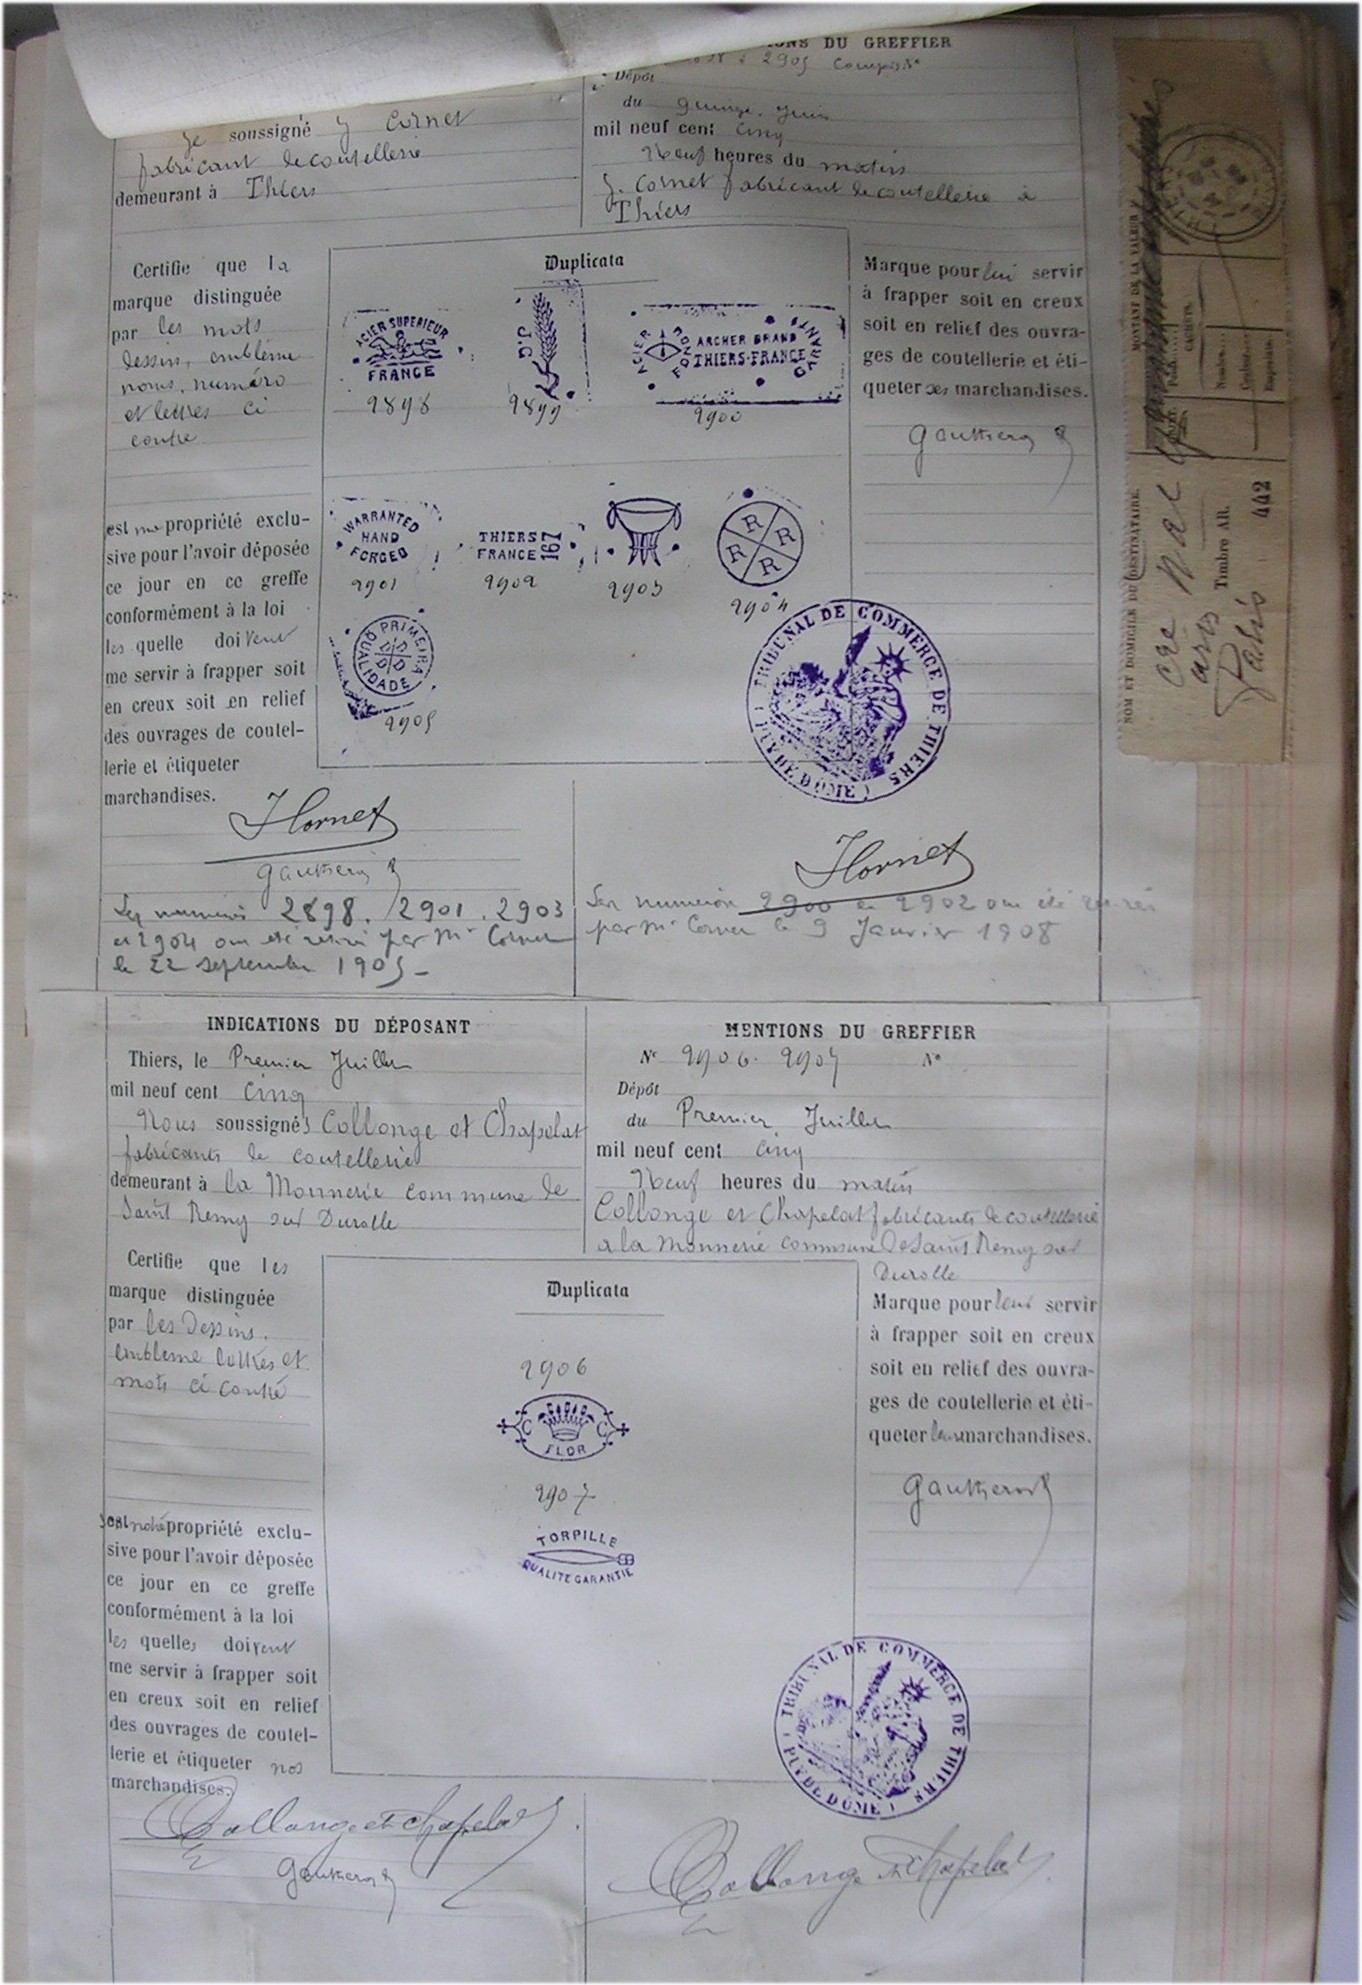 DU GREFFIER
2905
Dépôt
Je soussigné J Cornet
fabricant de coutellerie
demeurant à Thiers
du quinze Juin
mil neuf cent cinq
Neuf heures du matin
J. Cornet fabricant de coutellerie à
Thiers
Certifie que la
marque distinguée
par les mots
dessin, emblème
noms, numéro
et lettres ci
contre
est ma propriété exclu-
sive pour l'avoir déposée
ce jour en ce greffe
conformément à la loi
les quelle doivent
me servir à frapper soit
en creux soit en relief
des ouvrages de coutel-
lerie et étiqueter
marchandises.
Duplicata
ACIER SUPERIEUR
FRANCE
2898
J.C
2899
ACIER FONDU
ARCHER BRAND
THIERS-FRANCE
GARANTI
2900
WARRANTED
HAND
FORGED
2901
THIERS
FRANCE
167
2902
2903
R R R R
2904
PRIMEIRA QUALIDADE
D D D D
2905
Marque pour lui servir
à frapper soit en creux
soit en relief des ouvra-
ges de coutellerie et éti-
queter ses marchandises.
TRIBUNAL DE COMMERCE DE THIERS
( PUY DE DOME )
Les numéros 2898. 2901. 2903
et 2904 ont été retiré par Mr Cornet
le 22 septembre 1905_
Les numéros 2900 et 2902 ont été retirés
par Mr Cornet le 9 Janvier 1908
INDICATIONS DU DÉPOSANT
Thiers, le Premier Juillet
mil neuf cent cinq
Nous soussignés Collonge et Chapelat
fabricants de coutellerie
demeurant à la Monnerie commune de
Saint Remy sur Durolle
MENTIONS DU GREFFIER
No 2906. 2907 No
Dépôt
du Premier Juillet
mil neuf cent cinq
Neuf heures du matin
Collonge et Chapelat fabricants de coutellerie
a la Monnerie commune de Saint Remy sur
Durolle
Certifie que les
marque distinguée
par les Dessins.
emblème lettres et
mots ci contre
sont notre propriété exclu-
sive pour l'avoir déposée
ce jour en ce greffe
conformément à la loi
les quelles doivent
me servir à frapper soit
en creux soit en relief
des ouvrages de coutel-
lerie et étiqueter nos
marchandises.
Duplicata
2906
C C
FLOR
2907
TORPILLE
QUALITE GARANTIE
Marque pour leur servir
à frapper soit en creux
soit en relief des ouvra-
ges de coutellerie et éti-
queter leurs marchandises.
TRIBUNAL DE COMMERCE DE THIERS
( PUY DE DOME )
Collonge et Chapelat
Collonge et Chapelat
MONTANT DE LA VALEUR
CACHETS.
NOM ET DOMICILE DU DESTINATAIRE.
Timbre AR.
442
Paris